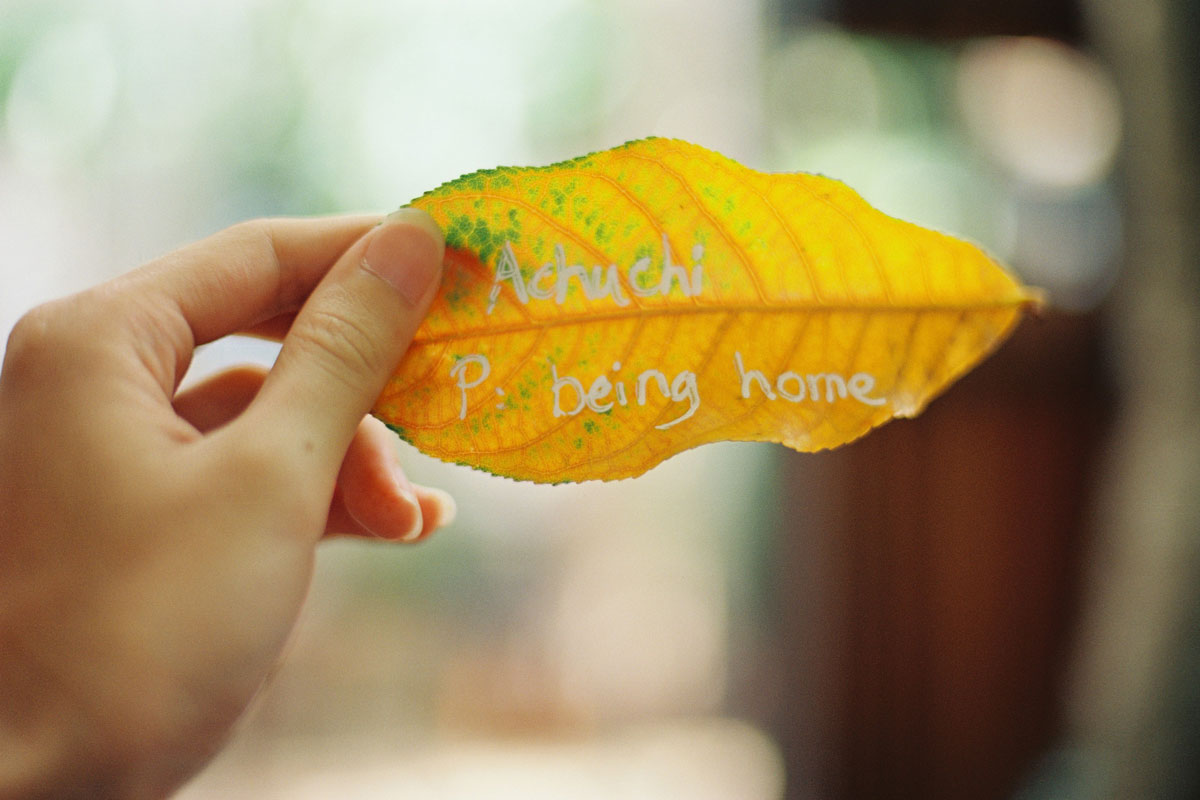 Achuchi
P: being home